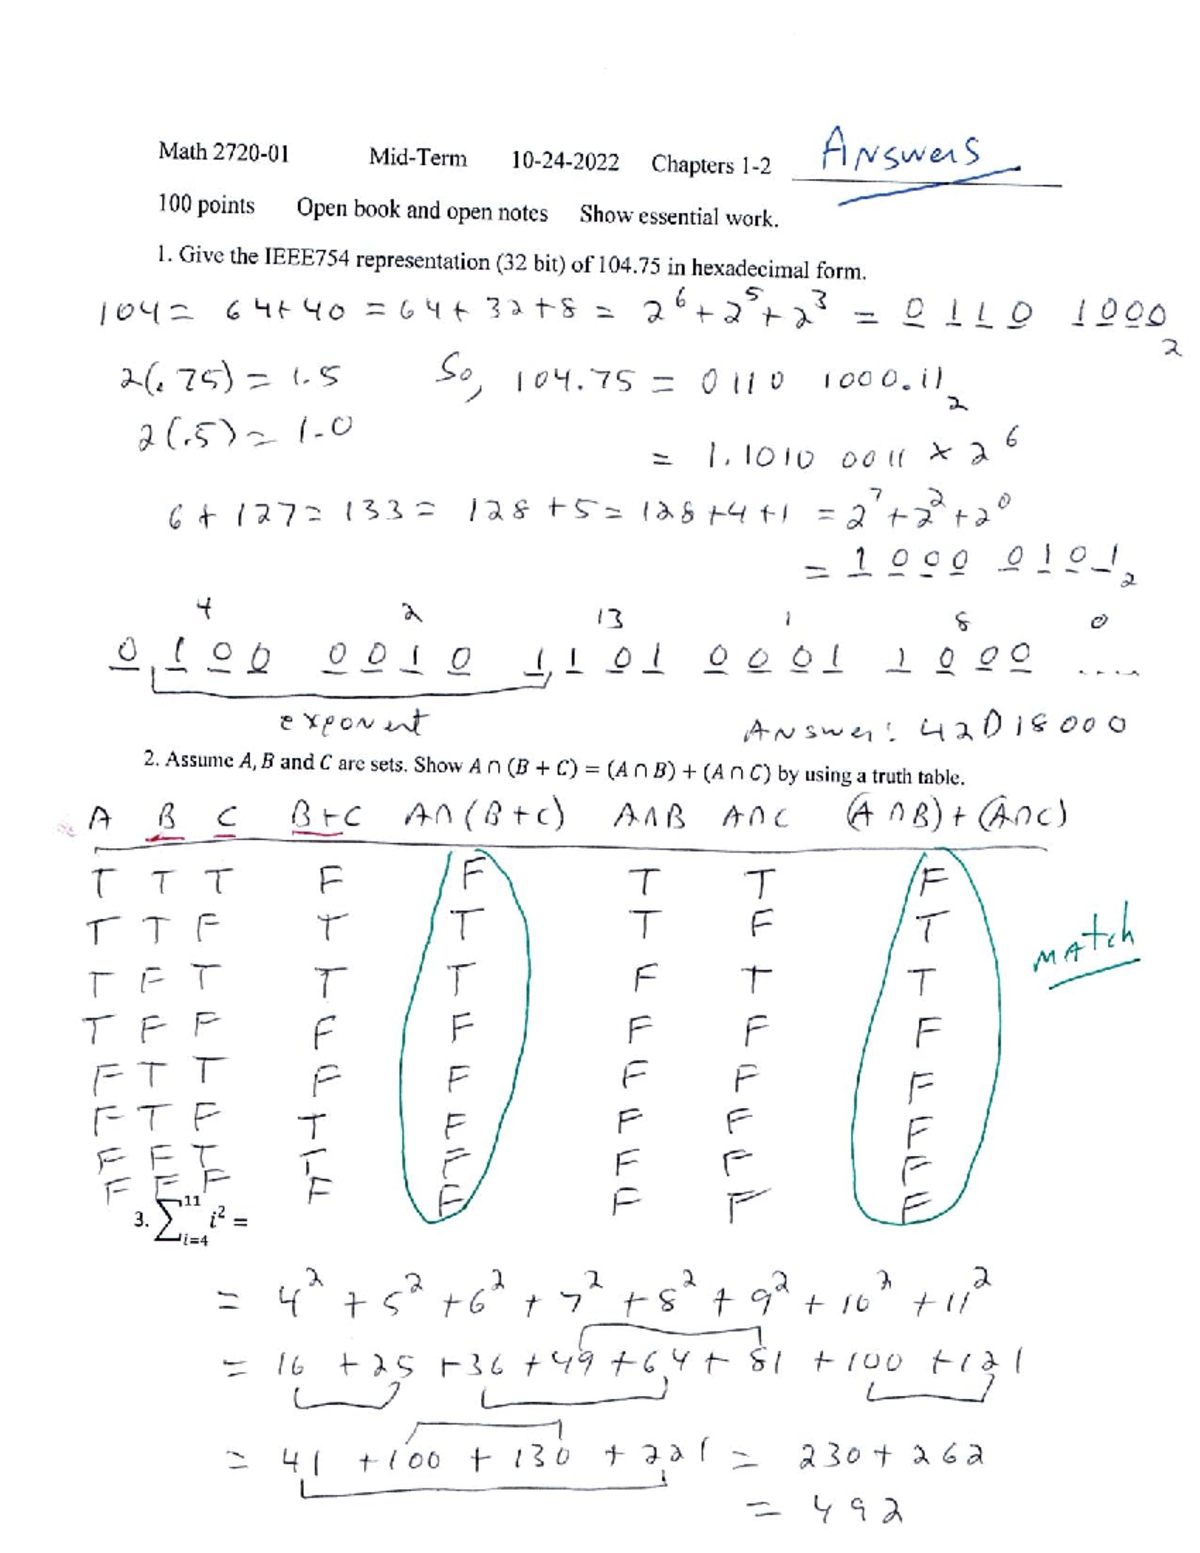 Math 2720-01 Mid-Term 10-24-2022 Chapters 1-2 Answers
100 points Open book and open notes Show essential work.
1. Give the IEEE754 representation (32 bit) of 104.75 in hexadecimal form.
104 = 64+40 = 64+32+8 = 2^6+2^5+2^3 = 0110 1000_2
2(.75) = 1.5 So, 104.75 = 0110 1000.11_2
2(.5) = 1.0
= 1.1010 0011 × 2^6
6+127 = 133 = 128+5 = 128+4+1 = 2^7+2^2+2^0
= 1000 0101_2
4 2 13 1 8 0
0100 0010 1101 0001 1000 ....
exponent Answer: 42D18000
2. Assume A, B and C are sets. Show A ∩ (B + C) = (A ∩ B) + (A ∩ C) by using a truth table.
A B C B+C A∩(B+C) A∩B A∩C (A∩B)+(A∩C)
T T T F F T T F
T T F T T T F T
match
T F T T T F T T
T F F F F F F F
F T T F F F F F
F T F T F F F F
F F T T F F F F
F F F F F F F F
3. ∑_{i=4}^{11} i² =
= 4² + 5² + 6² + 7² + 8² + 9² + 10² + 11²
= 16 + 25 + 36 + 49 + 64 + 81 + 100 + 121
= 41 + 100 + 130 + 221 = 230 + 262
= 492